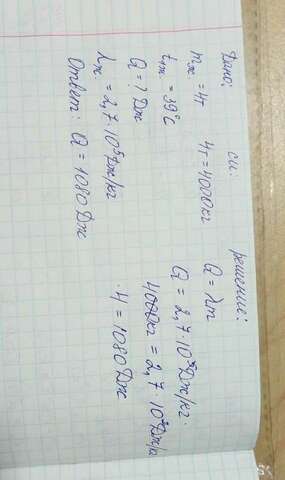 Дано:
mж = 4т
tж = 39°C
Q = ? Дж
λж = 2,7 · 10⁵ Дж/кг
Ответ: Q = 1080 Дж
си:
4т = 4000кг
решение:
Q = λm
Q = 2,7 · 10⁵ Дж/кг ·
4000кг = 2,7 · 10² Дж/к
· 4 = 1080 Дж